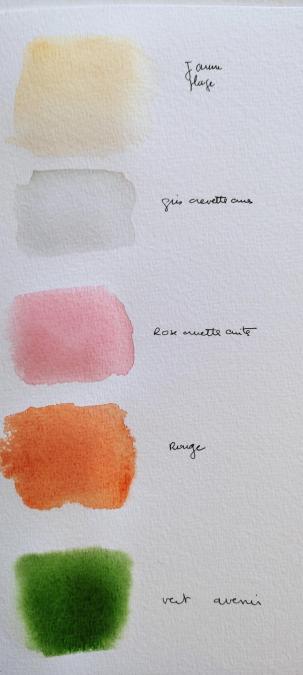 Jaune
plage
gris crevette crus
Rose crevette cuite
Rouge
vert avenir